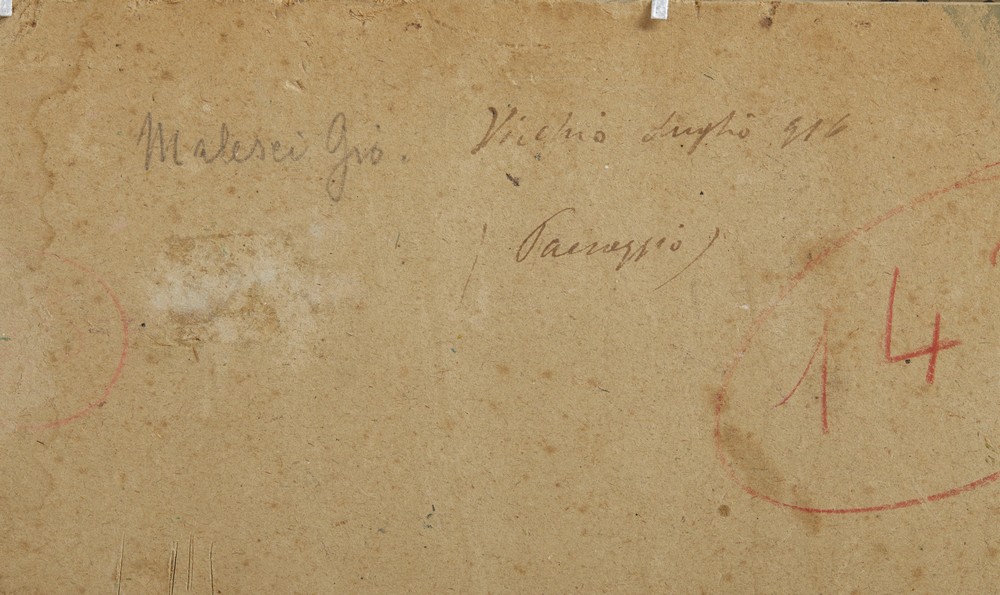 Malesci Gio. Vicchio Luglio 916
(Paesaggio)
14